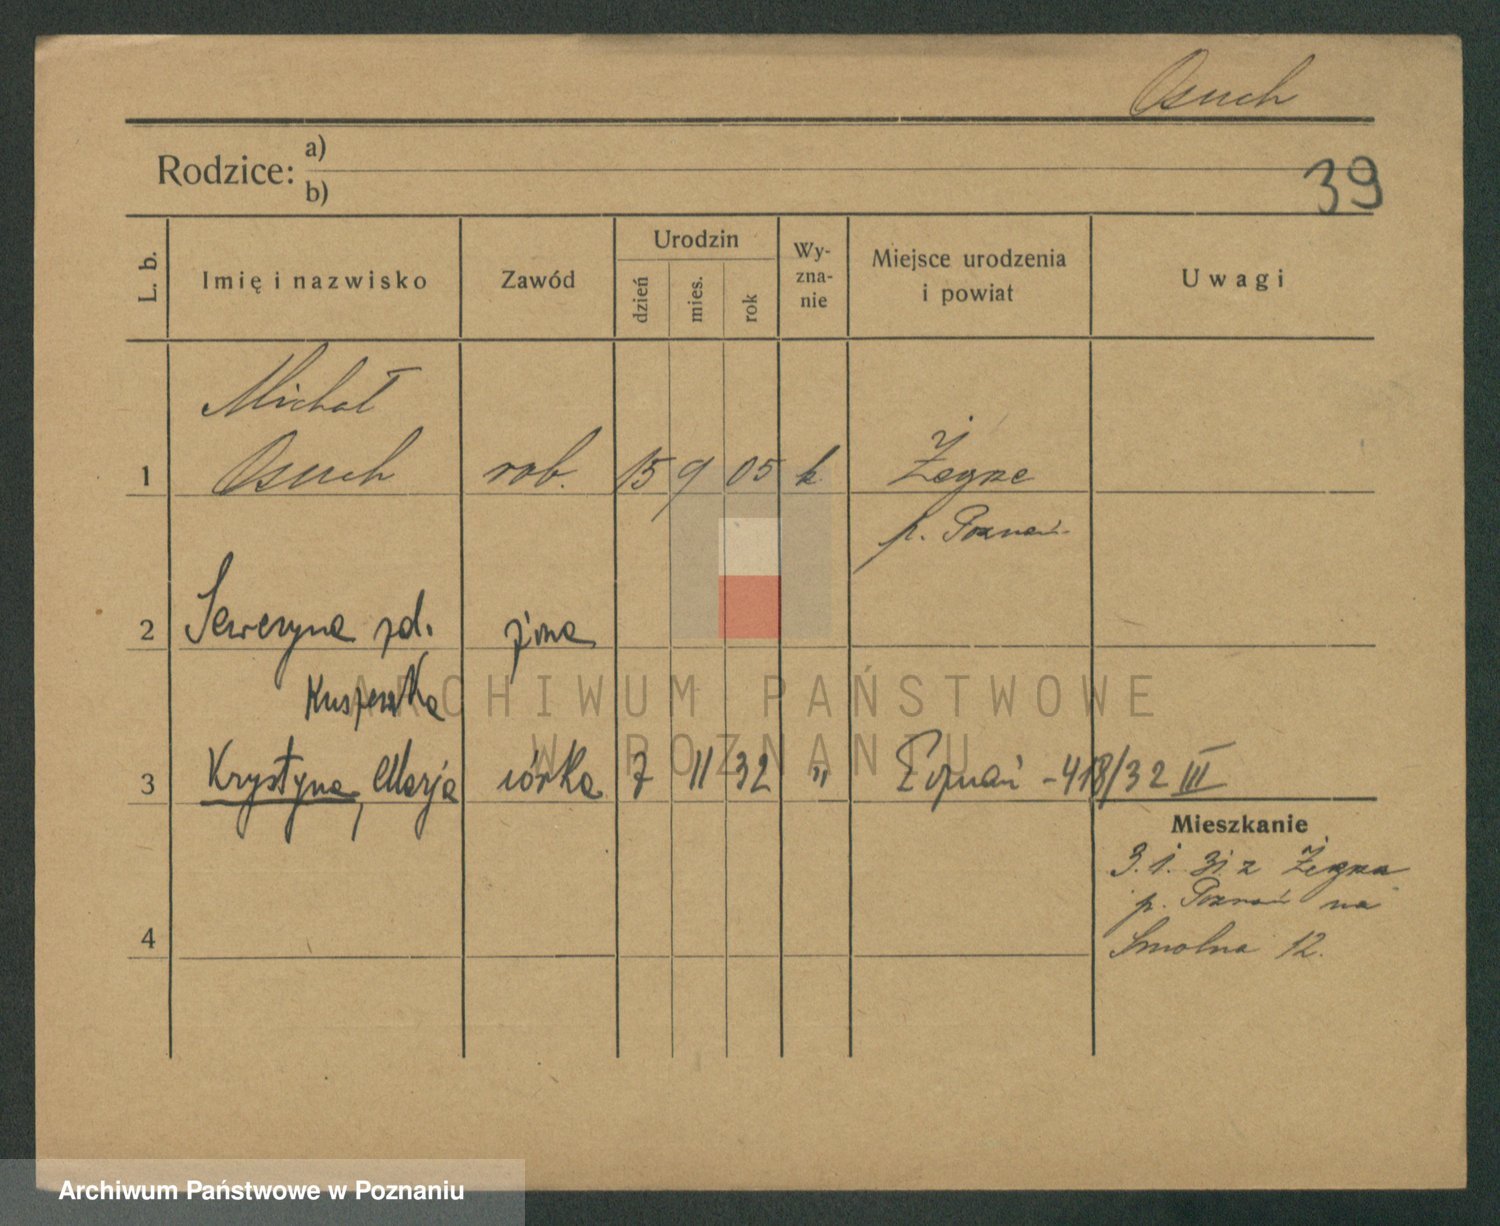 Osuch
Rodzice: a)
b)
39
L. b. Imię i nazwisko Zawód Urodzin dzień mies. rok Wy-zna-nie Miejsce urodzenia i powiat Uwagi
Michał
1 Osuch rob. 15 9 05 k Żegrze
p. Poznań
2 Seweryna zd. żona
3 Krystyna, Marja córka 7 11 32 " Poznań - 418/32 III
Mieszkanie
3. 1. 31 z Żegrza
p. Poznań na
4 Smolna 12.
ARCHIWUM PAŃSTWOWE
W POZNANIU
Archiwum Państwowe w Poznaniu